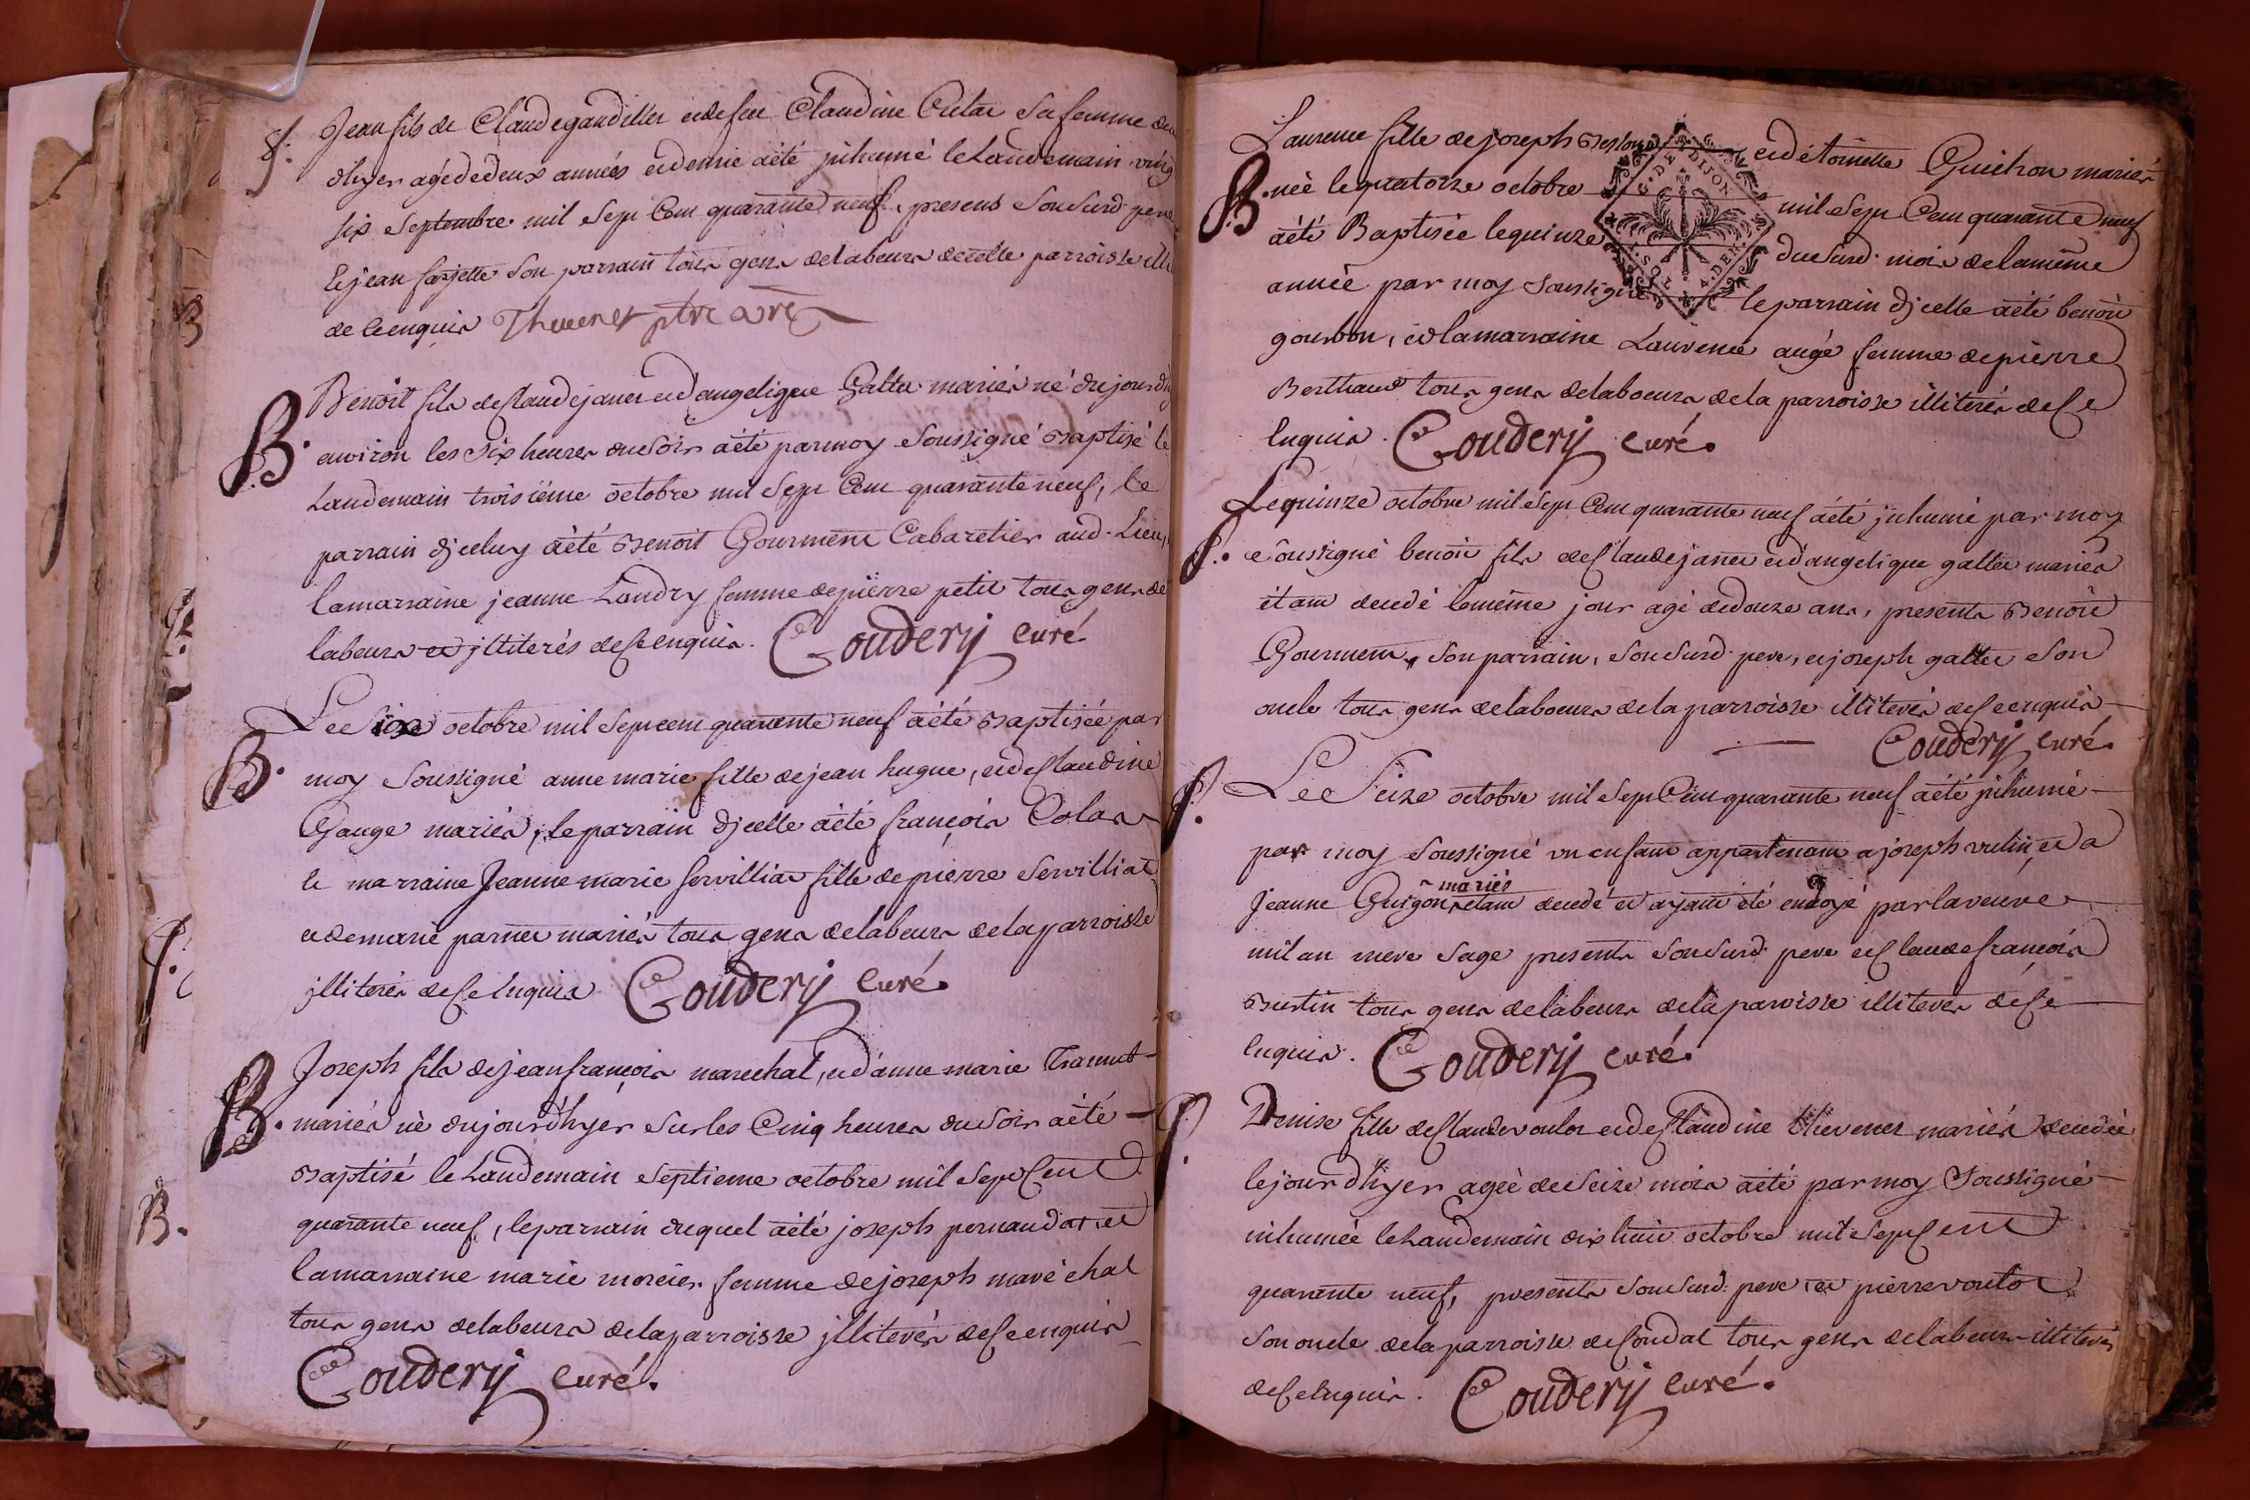 S. Jean fils de Claude gaudillier et de feu Claudine Cutar sa femme
d'hyer agé de deux années et demie a été jnhumé le Landemain vingt
six septembre mil sept Cent quarante neuf, presens son susd. pere
le jean forjette son parrain tous gens de labeurs de cette parroisse
de Cenquia Thuenet ptre
B. Benoît fils de Claude janer et d'angelique Galter mariés né du jour d'hy
environ les six heures du soir a été par moy soussigné baptisé le
Landemain troisiéme octobre mil sept Cent quarante neuf, le
parrain djceluy a été Benoît Gourment Cabaretier aud. Lieu,
la marraine jeanne Landry femme de pierre petit tous gens de
labeurs et jlliterés de Cenquia. Coudery curé
Le six octobre mil sept cent quarante neuf a été baptisée par
B. moy soussigné anne marie fille de jean hugue, et de Claudine
Gauge mariés, le parrain djcelle a été françois Colas
le marraine Jeanne marie servilliat fille de pierre servilliat
et de marie parner mariés tous gens de labeurs de la parroisse
jlliterés de Cenquia Coudery Curé.
Joseph fils de jean françois marechal, et d'anne marie Tramut
B. mariés né du jour d'hyer sur les Cinq heures du soir a été
baptisé le Landemain septieme octobre mil sept Cent
quarante neuf, le parrain duquel a été joseph pernaudat et
la marraine marie morcier femme de joseph maréchal
tous gens de labeurs de la parroisse jlliterés de Cenquia
Coudery curé.
Laurence fille de joseph et d'étoinette Guichon mariés
B. née le quatorze octobre mil sept Cent quarante neuf
a été Baptisée le quinze du susd. mois de la même
année par moy soussigné le parrain djcelle a été benoît
gourbon, et la marraine Laurence augé femme de pierre
Berthaud tous gens de laboeurs de la parroisse illiterés de Ce
nquia. Coudery curé.
Le quinze octobre mil sept Cent quarante neuf a été jnhumé par moy
S. soussigné benoît fils de Claude janer et d'angelique galter mariés
étant decedé le même jour agé de douze ans, presents Benoît
Gourment, son parrain, son susd. pere, et joseph galter son
oncle tous gens de laboeurs de la parroisse illiterés de Cenquia
Coudery curé.
S. Le Seize octobre mil sept Cent quarante neuf a été jnhumé
par moy soussigné un enfant appartenant a joseph vulin et a
Jeanne Guigon mariés etant decedé et ayant été endoyé par la veuve
milan mere sage presents son susd. pere et Claude françois
Burtin tous gens de labeurs de la parroisse illiterés de Ce
nquia. Coudery curé.
S. Denise fille de Claude voulot et de Claudine thievener mariés decedée
le jour d'hyer agée de seize mois a été par moy soussigné
inhumée le Landemain dix huit octobre mil sept Cent
quarante neuf, presents son susd. pere et pierre voulot
son oncle de la parroisse de Condal tous gens de labeurs illiterés
de Cenquia. Coudery Curé.
DIJON